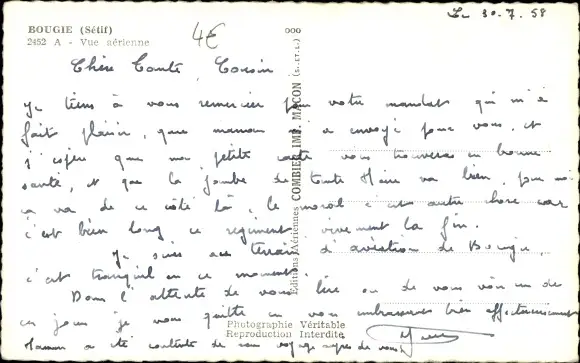 Le 30.7.58
BOUGIE (Sétif)
2452 A - Vue aérienne
4€
Chère Tante, Cousin
Je tiens à vous remercier pour votre mandat qui m'a
fait plaisir, que maman m'a envoyé pour vous, et
j'espère que ma petite carte vous trouvera en bonne
santé, et que la jambe de tante va bien, pour moi
ça va de ce côté là, le moral c'est autre chose car
c'est bien long ce régiment vivement la fin.
Je suis au terrain d'aviation de Bougie,
c'est tranquil en ce moment.
Dans l'attente de vous lire ou de vous voir un de
ces jours je vous quitte en vous embrassant bien affectueusement
Maman a été contente de son voyage auprès de vous,
Editions Aériennes COMBIER IMP. MACON
Photographie Véritable
Reproduction Interdite